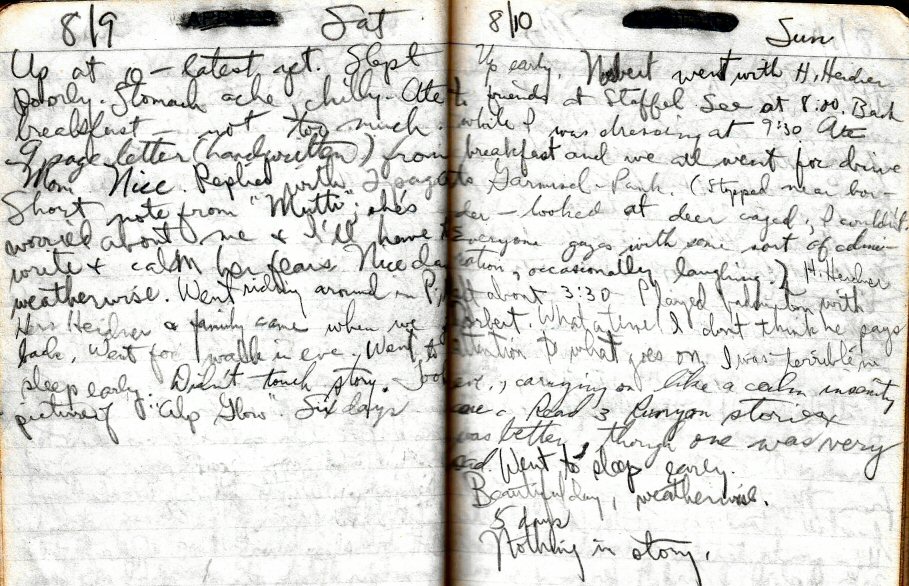 8/9 Sat
Up at 10 - latest yet. Slept
poorly. Stomach ache, chilly. Ate
breakfast - not too much.
9 page letter (handwritten) from
Mom. Nice. Replied with 2 page
Short note from "Mutti"; she's
worried about me & I'll have to
write & calm her fears. Nice day
weatherwise. Went riding around in
Herr Heidner & family came when we
back. Went for walk in eve. Went to
sleep early. Didn't touch story. Took
picture of "Alp Glow". Six days
8/10 Sun
Up early. Norbert went with H. Heidner
to friends at Staffel See at 8:00. Back
while I was dressing at 9:30 Ate
breakfast and we all went for drive
to Garmisch-Partk. (Stopped near bor-
der - looked at deer caged, I couldn't
everyone gazes with some sort of admir-
ation, occasionally laughing.) H. Heidner
left about 3:30 Played badminton with
Norbert. What a time! I don't think he pays
attention to what goes on. I was terrible in
eve., carrying on like a calm insanity
case. Read 3 Runyon stories
was better, though one was very
sad. Went to sleep early.
Beautiful day, weatherwise.
5 days
Nothing in story.